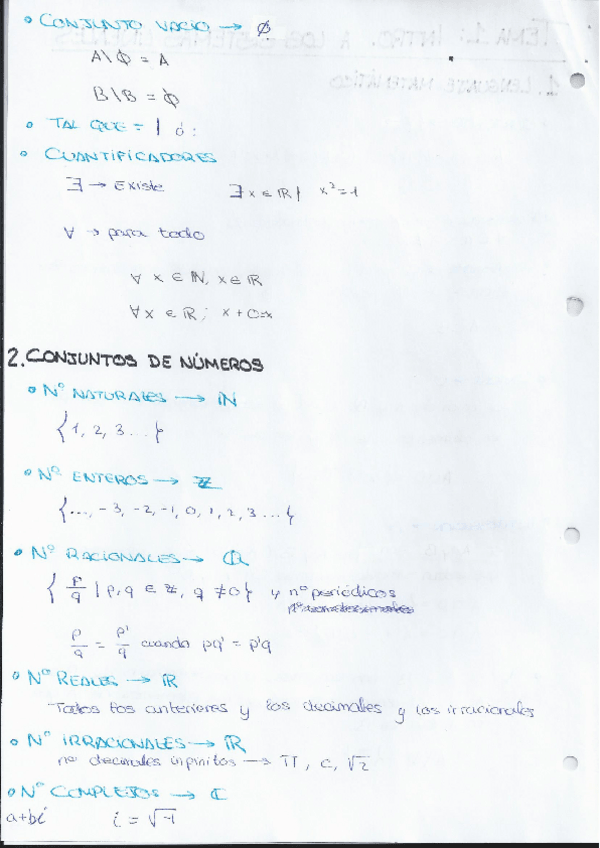 • CONJUNTO VACIO → ∅
A\∅ = A
B\B = ∅
• TAL QUE = | ó :
• CUANTIFICADORES
∃ → Existe ∃ x ∈ ℝ | x² = 1
∀ → para todo
∀ x ∈ ℕ, x ∈ ℝ
∀ x ∈ ℝ ; x + 0 = x
2. CONJUNTOS DE NÚMEROS
• Nº NATURALES → ℕ
{1, 2, 3 ...}
• Nº ENTEROS → ℤ
{..., -3, -2, -1, 0, 1, 2, 3 ...}
• Nº RACIONALES → ℚ
{ p/q | p, q ∈ ℤ, q ≠ 0 } y nº periódicos
p/q = p'/q' cuando pq' = p'q
• Nº REALES → ℝ
Todos los anteriores y los decimales y los irracionales
• Nº IRRACIONALES → ℝ
nº decimales infinitos → π, e, √2
• Nº COMPLEJOS → ℂ
a+bi i = √-1